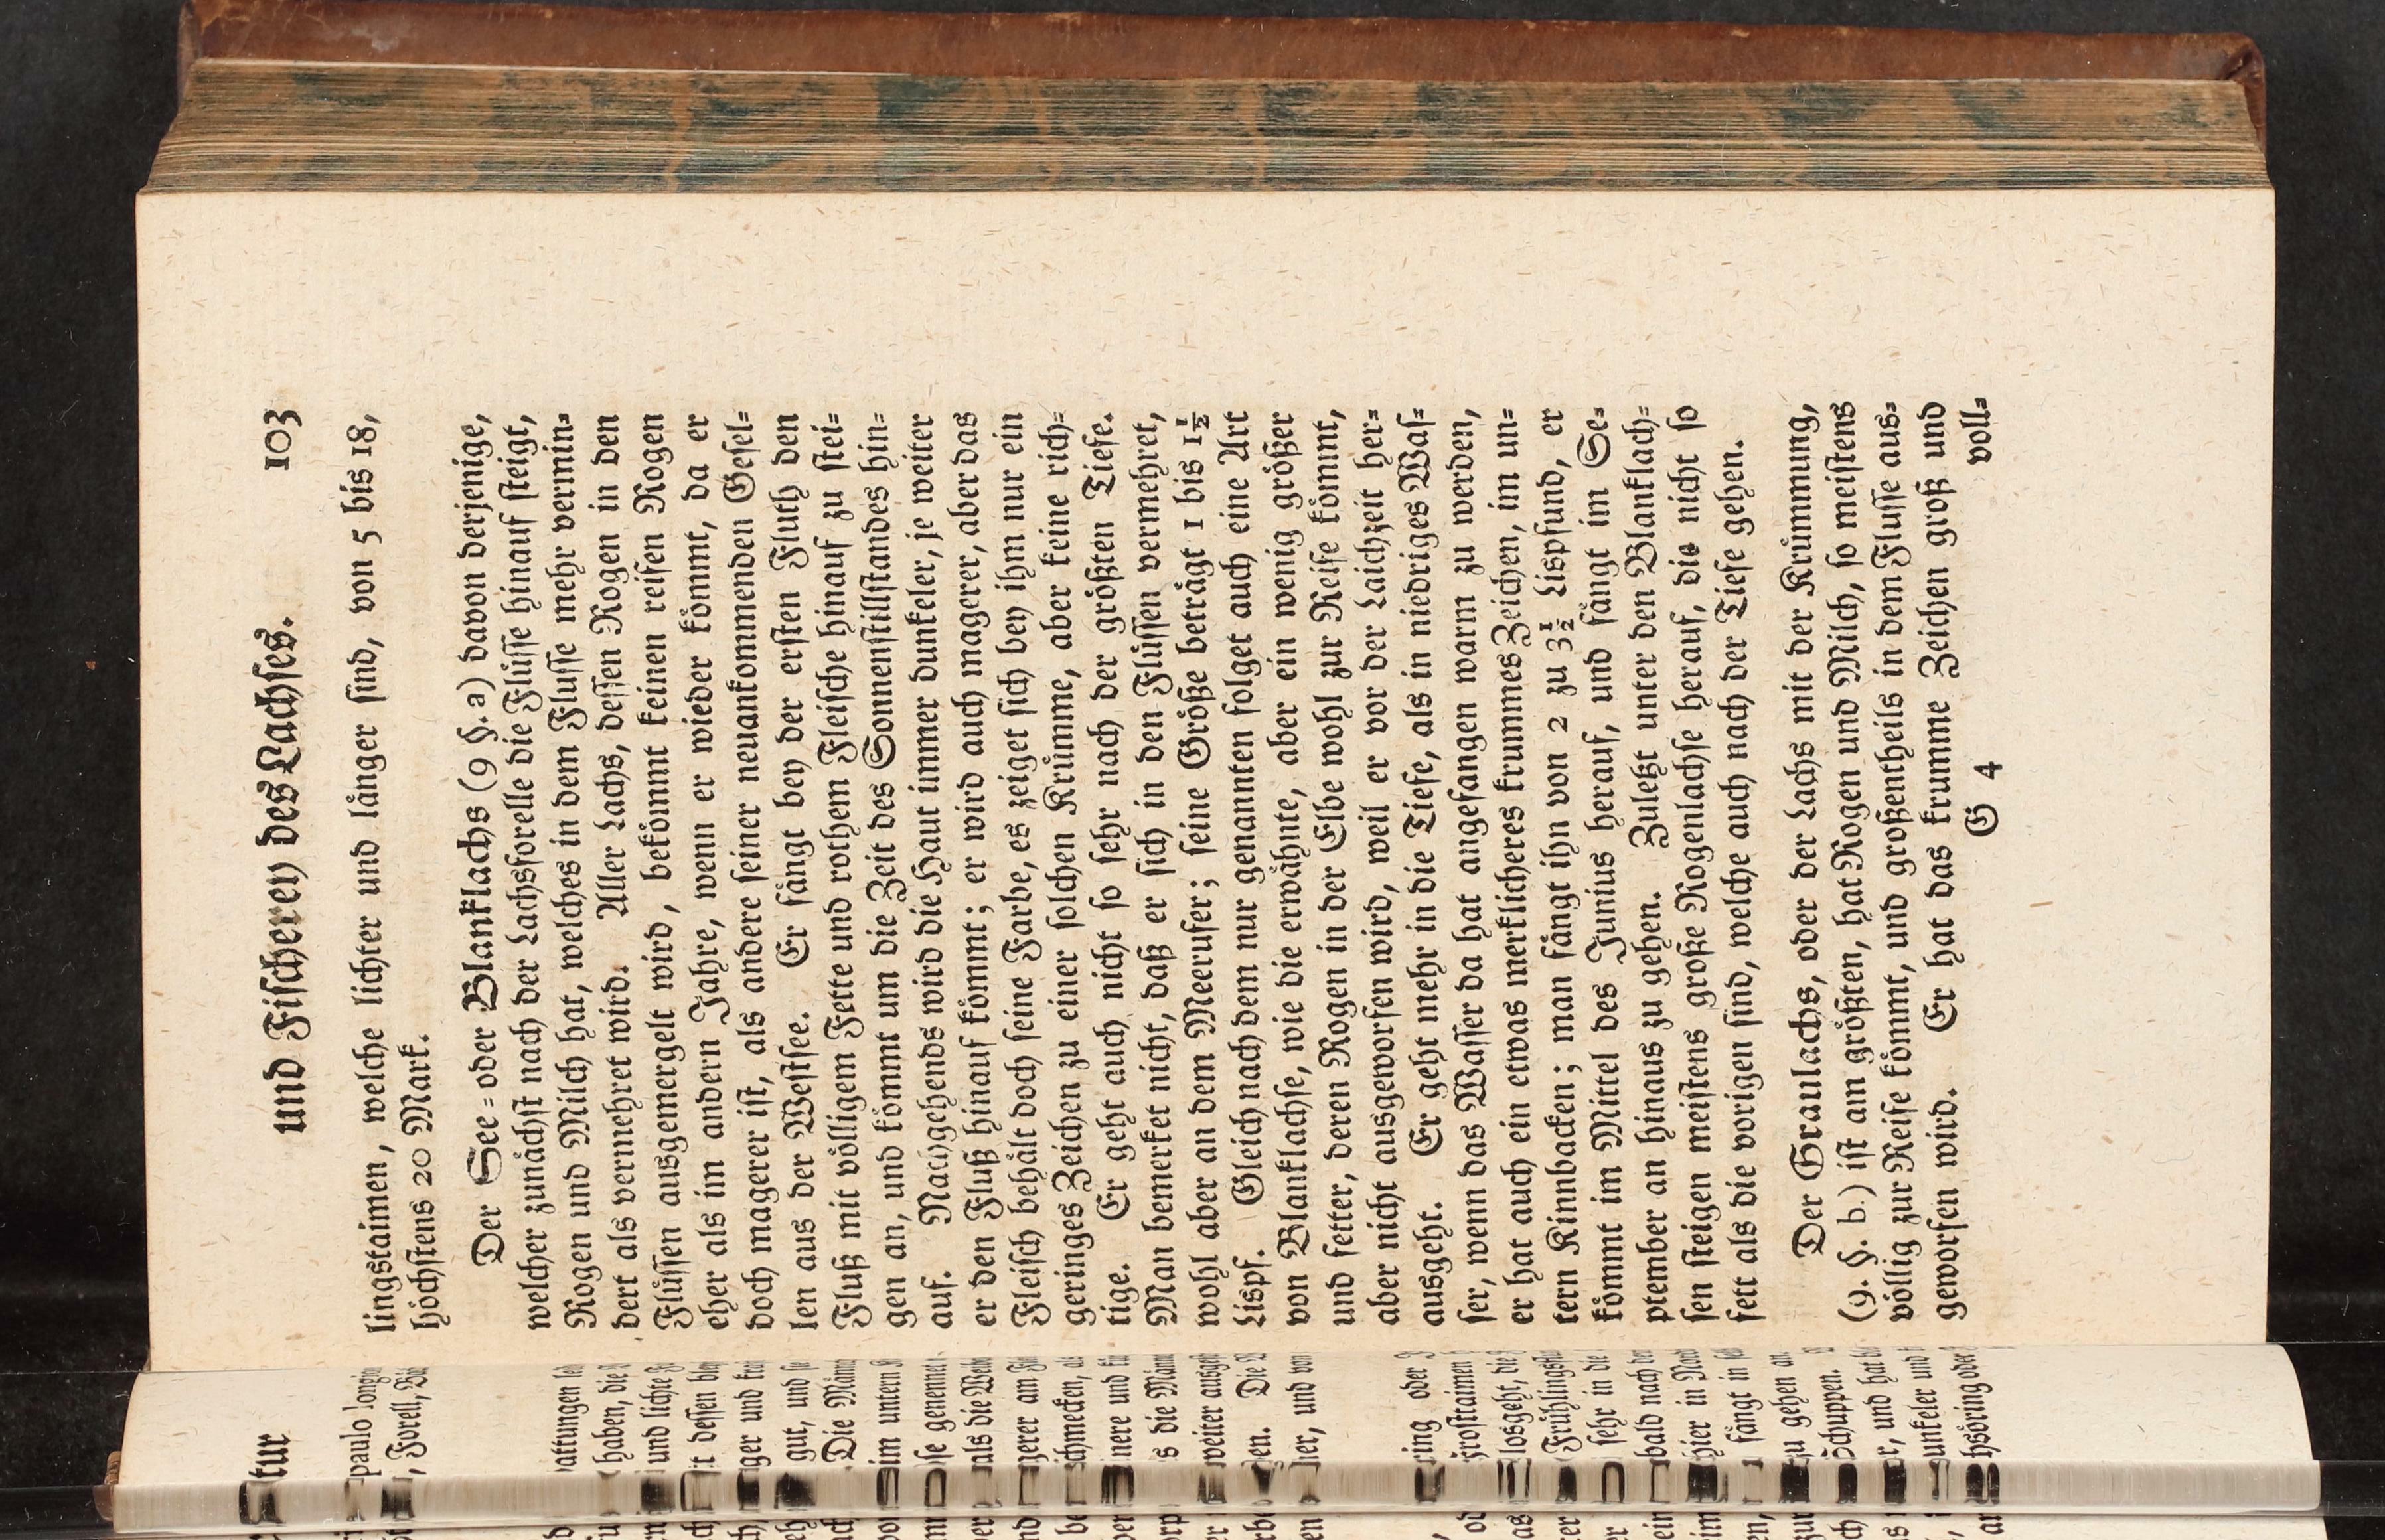 und Fischerey des Lachses. 103
lingstaimen, welche lichter und länger sind, von 5 bis 18,
höchstens 20 Mark.
Der See=oder Blanklachs (9 §. a) davon derjenige,
welcher zunächst nach der Lachsforelle die Flüsse hinauf steigt,
Rogen und Milch hat, welches in dem Flusse mehr vermin=
dert als vermehret wird. Aller Lachs, dessen Rogen in den
Flüssen ausgemergelt wird, bekömmt keinen reifen Rogen
eher als im andern Jahre, wenn er wieder kömmt, da er
doch magerer ist, als andere seiner neuankommenden Gesel=
len aus der Westsee. Er fängt bey der ersten Fluth den
Fluß mit völligem Fette und rothem Fleische hinauf zu stei=
gen an, und kömmt um die Zeit des Sonnenstillstandes hin=
auf. Nachgehends wird die Haut immer dunkeler, je weiter
er den Fluß hinauf kömmt; er wird auch magerer, aber das
Fleisch behält doch seine Farbe, es zeiget sich bey ihm nur ein
geringes Zeichen zu einer solchen Krümme, aber keine rich=
tige. Er geht auch nicht so sehr nach der größten Tiefe.
Man bemerket nicht, daß er sich in den Flüssen vermehret,
wohl aber an dem Meerufer; seine Größe beträgt 1 bis 1½
Lispf. Gleich nach dem nur genannten folget auch eine Art
von Blanklachse, wie die erwähnte, aber ein wenig größer
und fetter, deren Rogen in der Elbe wohl zur Reife kömmt,
aber nicht ausgeworfen wird, weil er vor der Laichzeit her=
ausgeht. Er geht mehr in die Tiefe, als in niedriges Was=
ser, wenn das Wasser da hat angefangen warm zu werden,
er hat auch ein etwas merklicheres krummes Zeichen, im un=
tern Kinnbacken; man fängt ihn von 2 zu 3½ Lispfund, er
kömmt im Mittel des Junius herauf, und fängt im Se=
ptember an hinaus zu gehen. Zuletzt unter den Blanklach=
sen steigen meistens große Rogenlachse herauf, die nicht so
fett als die vorigen sind, welche auch nach der Tiefe gehen.
Der Graulachs, oder der Lachs mit der Krümmung,
(9. §. b.) ist am größten, hat Rogen und Milch, so meistens
völlig zur Reife kömmt, und großentheils in dem Flusse aus=
geworfen wird. Er hat das krumme Zeichen groß und
G 4 voll=